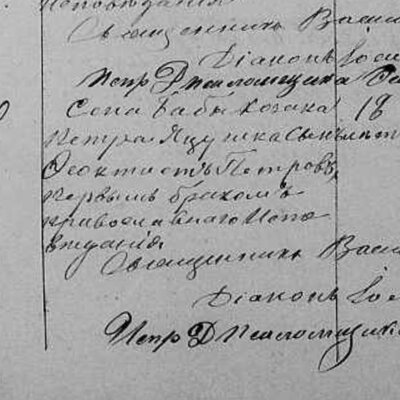 исповѣданія
Священникъ Васил
Діаконъ Іос
Испр Д Псаломщика
Села Бабы Козака 18
Петра Яцушка Сынъ лѣт
Ѳеоктистъ Петровъ,
первымъ бракомъ
православнаго Испо
вѣданія
Священникъ Васи
Діаконъ Іос
Испр Д Псаломщика